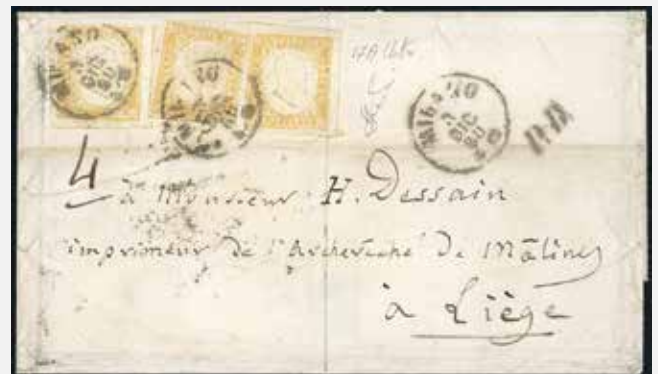 MILANO
MILANO
MILANO
DIC
60
P.D.
4
à Monsieur H. Dessain
imprimeur de l'Archevêché de Mâlines
à Liège